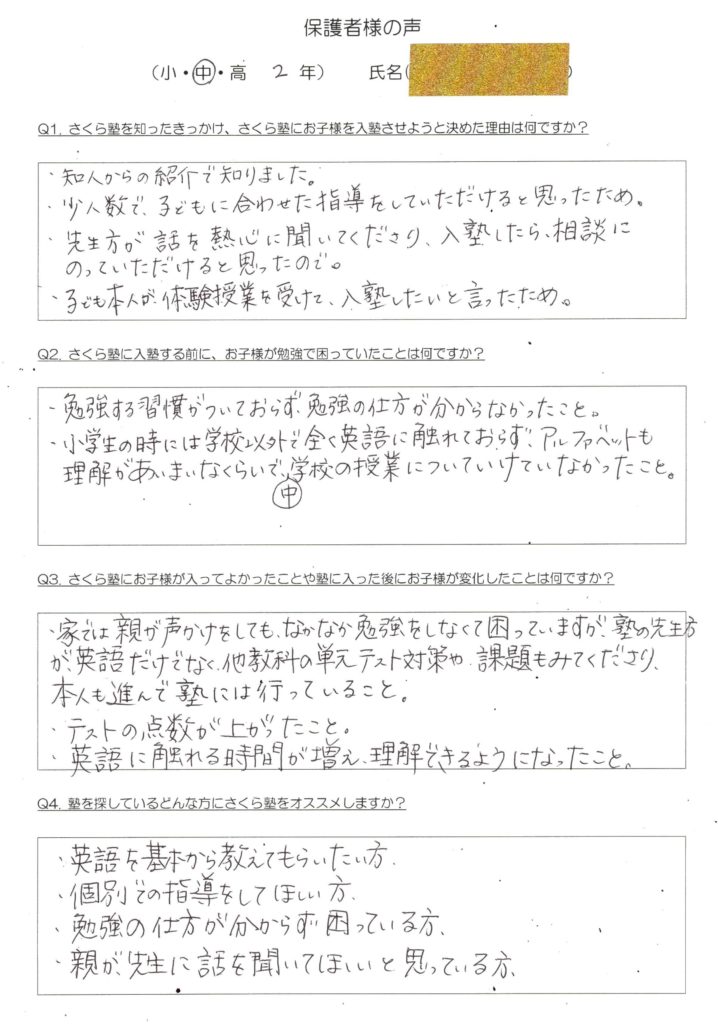 保護者様の声
(小・中・高 2 年) 氏名( )
Q1. さくら塾を知ったきっかけ、さくら塾にお子様を入塾させようと決めた理由は何ですか？
・知人からの紹介で知りました。
・少人数で、子どもに合わせた指導をしていただけると思ったため。
・先生方が話を熱心に聞いてくださり、入塾したら、相談に
のっていただけると思ったので。
・子ども本人が、体験授業を受けて、入塾したいと言ったため。
Q2. さくら塾に入塾する前に、お子様が勉強で困っていたことは何ですか？
・勉強する習慣がついておらず、勉強の仕方が分からなかったこと。
・小学生の時には学校以外で全く英語に触れておらず、アルファベットも
理解があいまいなくらいで、学校の授業についていけていなかったこと。
中
Q3. さくら塾にお子様が入ってよかったことや塾に入った後にお子様が変化したことは何ですか？
・家では親が声かけをしても、なかなか勉強をしなくて困っていますが、塾の先生方
が英語だけでなく、他教科の単元テスト対策や、課題もみてくださり、
本人も進んで塾には行っていること。
・テストの点数が上がったこと。
・英語に触れる時間が増え、理解できるようになったこと。
Q4. 塾を探しているどんな方にさくら塾をオススメしますか？
・英語を基本から教えてもらいたい方、
・個別での指導をしてほしい方、
・勉強の仕方が分からず困っている方、
・親が、先生に話を聞いてほしいと思っている方、